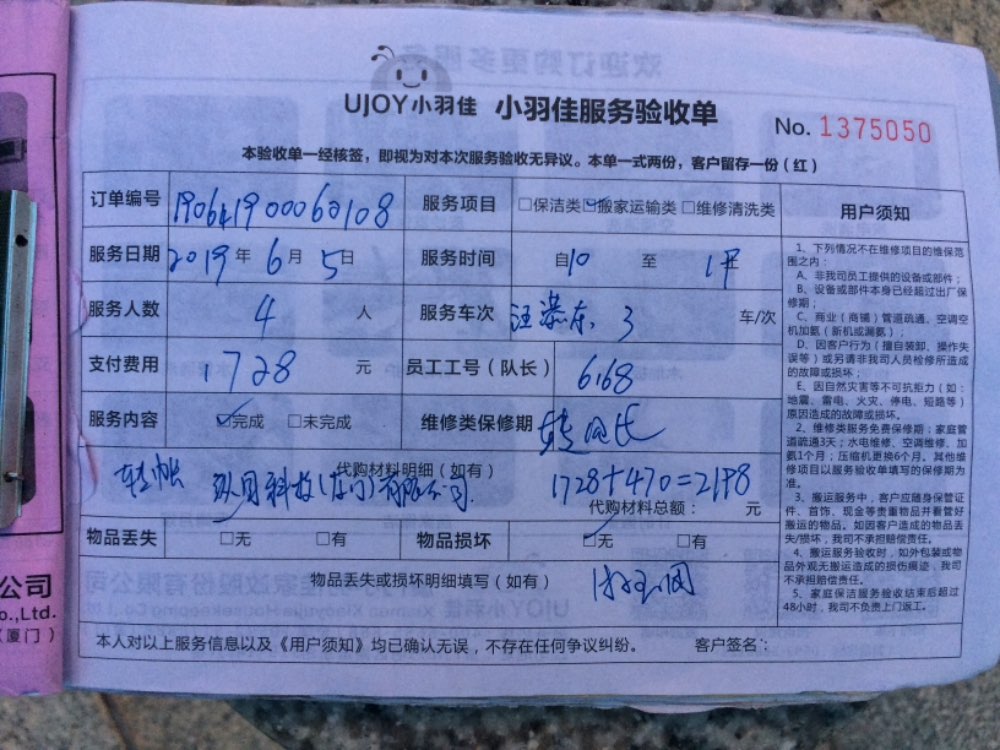 UJOY小羽佳 小羽佳服务验收单
No. 1375050
本验收单一经核签，即视为对本次服务验收无异议。本单一式两份，客户留存一份（红）
订单编号 190641900060108 服务项目 □保洁类 ☑搬家运输类 □维修清洗类
服务日期 2019年6月5日 服务时间 自10 至 1
服务人数 4 人 服务车次 3 车/次
支付费用 1728 元 员工工号（队长） 6168
服务内容 ☑完成 □未完成 维修类保修期
代购材料明细（如有）
转帐 科技(厦门)有限公司. 1728+470=2198
代购材料总额： 元
物品丢失 □无 □有 物品损坏 ☑无 □有
物品丢失或损坏明细填写（如有）
本人对以上服务信息以及《用户须知》均已确认无误，不存在任何争议纠纷。 客户签名：
用户须知
1、下列情况不在维修项目的维保范
围之内：
A、非我司员工提供的设备或部件；
B、设备或部件本身已经超过出厂保
修期；
C、商业（商铺）管道疏通、空调空
机加氨（新机或漏氨）；
D、因客户行为（擅自装卸、操作失
误等）或另请非我司人员检修所造成
的故障或损坏；
E、因自然灾害等不可抗拒力（如：
地震、雷电、火灾、停电、短路等）
原因造成的故障或损坏。
2、维修类服务免费保修期：家庭管
道疏通3天；水电维修、空调维修、加
氨1个月；压缩机更换6个月。其他维
修项目以服务验收单填写的保修期为
准。
3、搬运服务中，客户应随身保管证
件、首饰、现金等贵重物品并看管好
搬运的物品。如因客户造成的物品丢
失/损坏，我司不承担赔偿责任。
4、搬运服务验收时，如外包装或物
品外观无搬运造成的损伤痕迹，我司
不承担赔偿责任。
5、家庭保洁服务验收结束后超过
48小时，我司不负责上门返工。
公司
o.,Ltd.
（厦门）